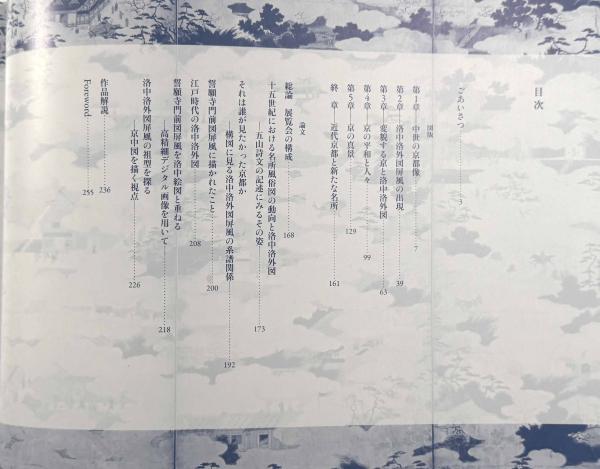 目次
ごあいさつ……3
図版
第1章──中世の京都像……7
第2章──洛中洛外図屏風の出現……39
第3章──変貌する京と洛中洛外図……63
第4章──京の平和と人々……99
第5章──京の真景……129
終 章──近代京都と新たな名所……161
論文
総論 展覧会の構成……168
十五世紀における名所風俗図の動向と洛中洛外図
──五山詩文の記述にみるその姿……173
それは誰が見たかった京都か
──構図に見る洛中洛外図屏風の系譜関係……192
誓願寺門前図屏風に描かれたこと……200
江戸時代の洛中洛外図……208
誓願寺門前図屏風を洛中絵図と重ねる
──高精細デジタル画像を用いて……218
洛中洛外図屏風の祖型を探る
──京中図を描く視点……226
作品解説……236
Foreword……255